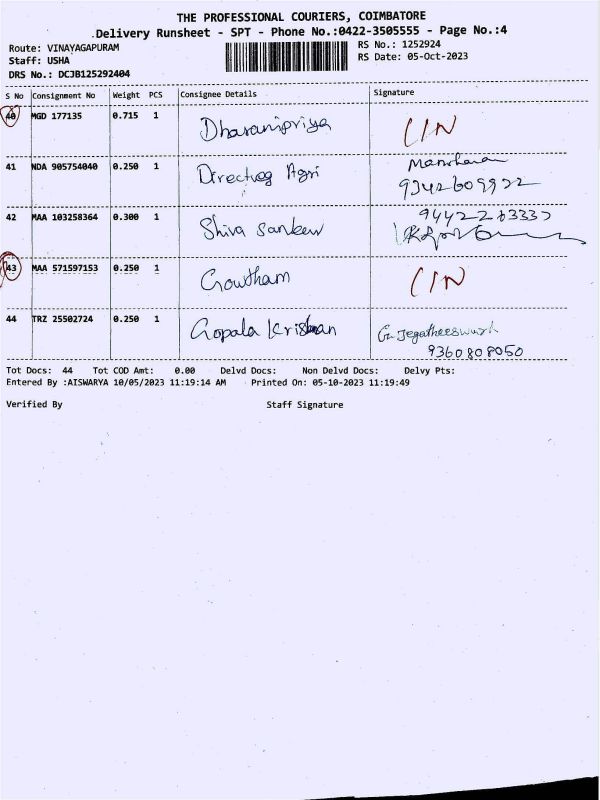 THE PROFESSIONAL COURIERS, COIMBATORE
.Delivery Runsheet - SPT - Phone No.:0422-3505555 - Page No.:4
Route: VINAYAGAPURAM RS No.: 1252924
Staff: USHA RS Date: 05-Oct-2023
DRS No.: DCJB125292404
S No Consignment No Weight PCS Consignee Details Signature
40 MGD 177135 0.715 1 Dharanipriya CIN
41 NDA 905754040 0.250 1 Agri Manoharan
9342609922
42 MAA 103258364 0.300 1 Shiva
43 MAA 571597153 0.250 1 Gowtham CIN
44 TRZ 25502724 0.250 1 Gopala Krishnan
9360808050
Tot Docs: 44 Tot COD Amt: 0.00 Delvd Docs: Non Delvd Docs: Delvy Pts:
Entered By :AISWARYA 10/05/2023 11:19:14 AM Printed On: 05-10-2023 11:19:49
Verified By Staff Signature